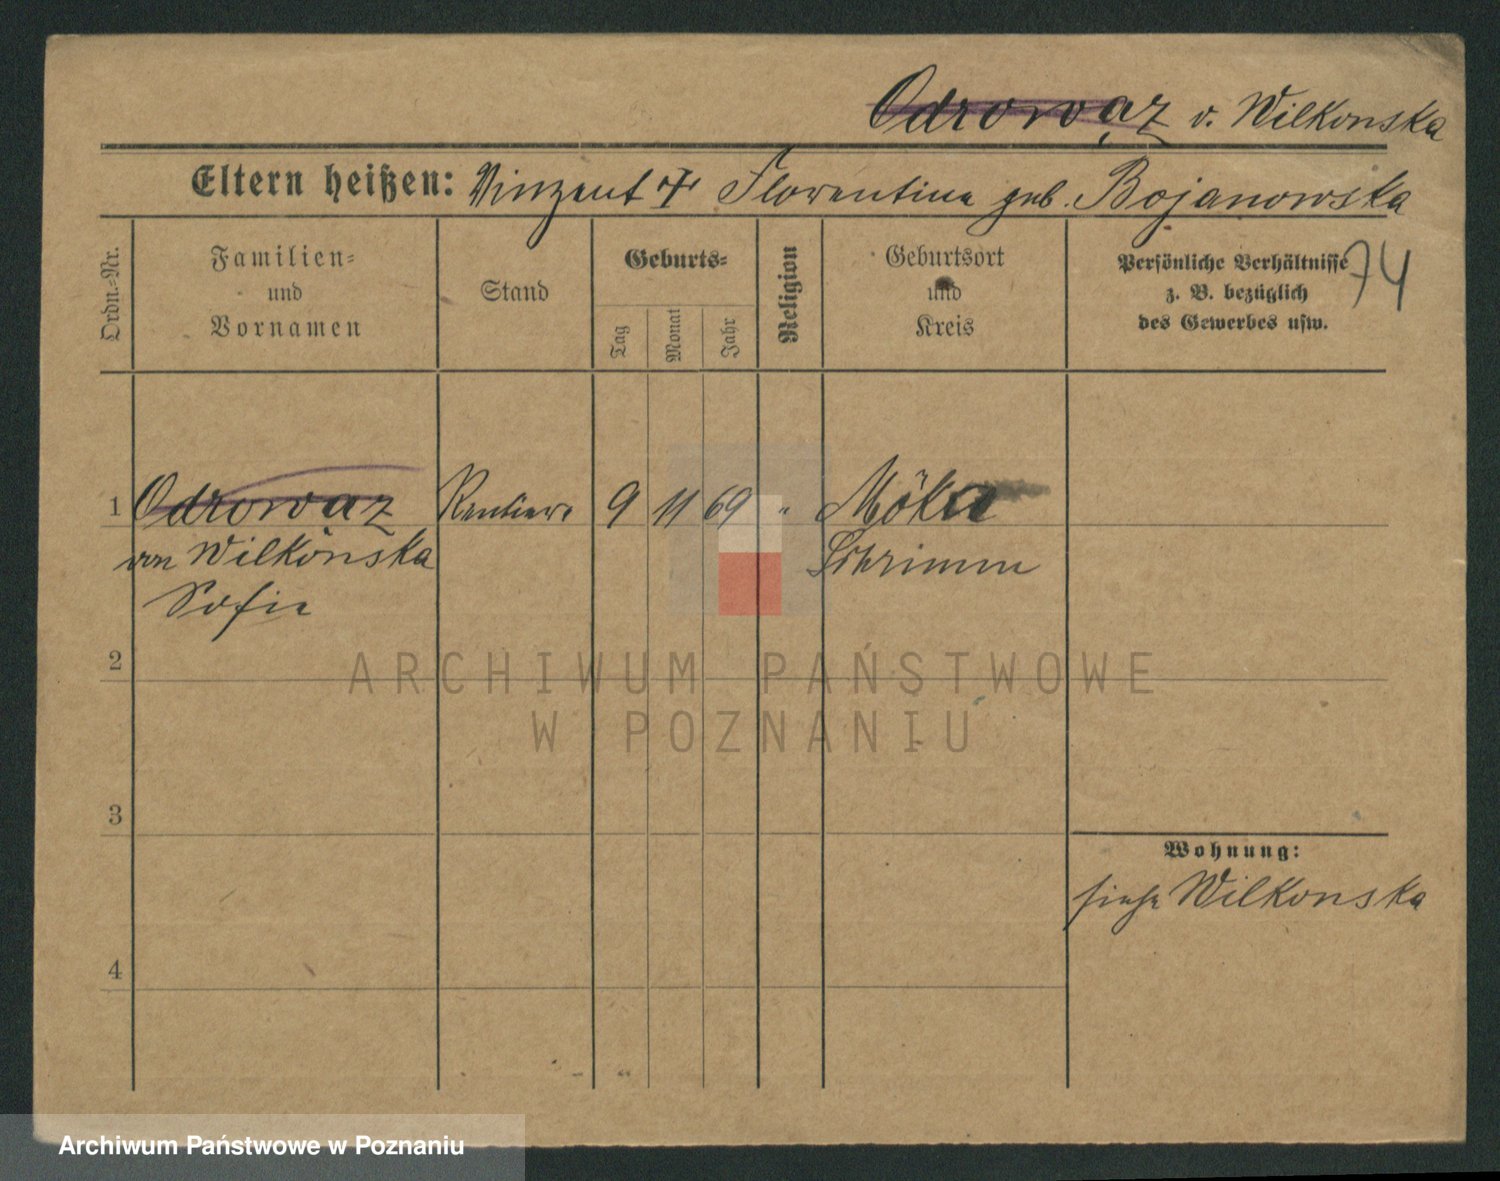 Odrowąz v. Wilkonska
Eltern heißen: Vinzent + Florentine geb. Bojanowska
74
Ordn.-Nr.
Familien-
und
Vornamen
Stand
Geburts-
Tag
Monat
Jahr
Religion
Geburtsort
und
Kreis
Persönliche Verhältnisse
z. B. bezüglich
des Gewerbes usw.
1 Odrowąz Rentiere 9 11 69 " Möka
von Wilkonska Schrimm
Sofie
2
ARCHIWUM PAŃSTWOWE
W POZNANIU
3
Wohnung:
siehe Wilkonska
4
Archiwum Państwowe w Poznaniu